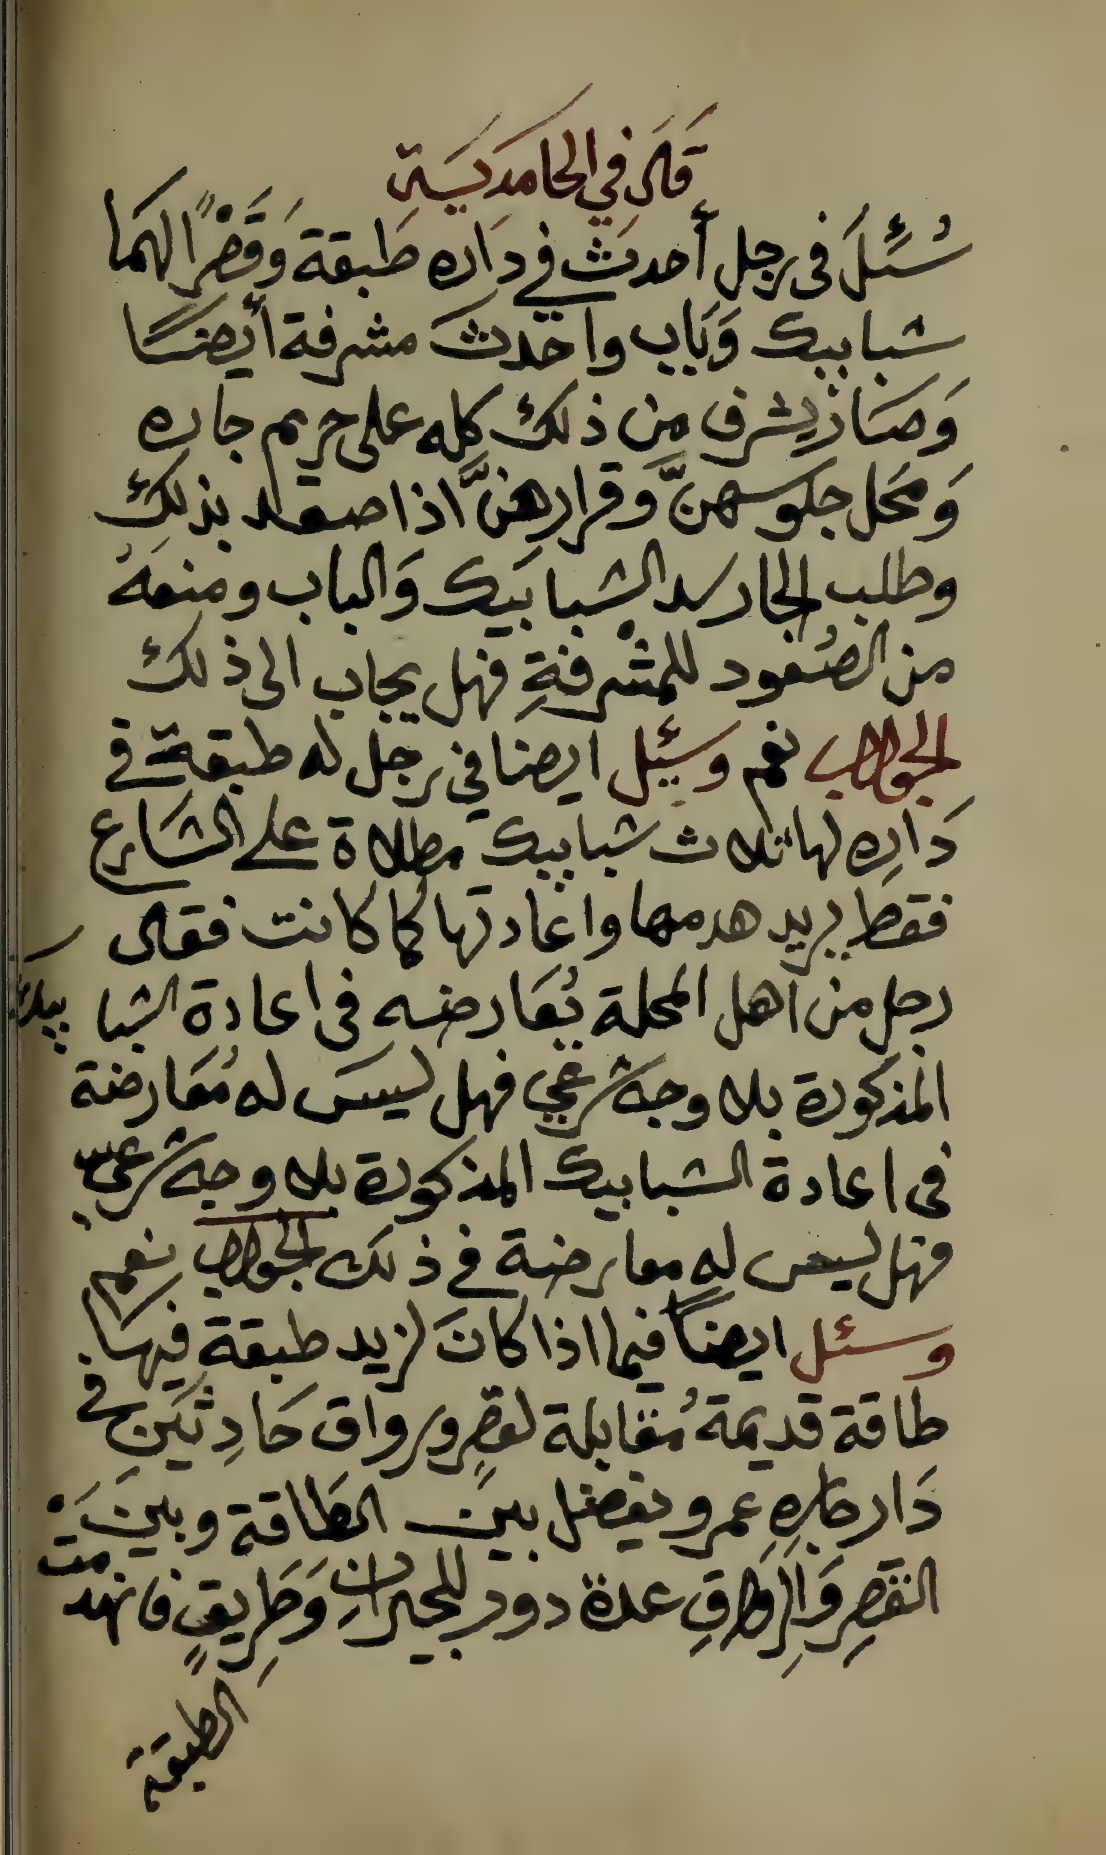 قال في الحامدية
سُئِلَ فى رجل أحدث في داره طبقة وَقَصْرًا لهما
شبابيك وَبَاب واحدثَ مشرفة أيضًا
وَصَارَ يشرف من ذلك كله على حريم جاره
وَمحل جلوسهنَّ وقرارهنَّ اذا صعد بذلك
وطلب الجار سد الشبابَيك وَالباب ومنعهُ
من الصُعود للمشرفةِ فهل يجاب الى ذلك
الجواب نعم وسُئِل ايضا في رجل له طبقة في
دَارِه لها ثلاث شبابيك مطلاة على الشَارع
فقط يريد هدمها واعادتها كما كانت فقال
رجل من أهل المحلة يُعَارضه فى اعادة الشبابيك
المذكورة بلا وجه شرعي فهل ليسَ له مُعَارضة
فى اعادة الشبابيك المذكورة بلا وجه شرعيٍّ
فهل ليس له معارضة في ذلك الجواب نعم
وسئل ايضاً فيما اذا كانَ لزيد طبقة فِيهَا
طاقة قديمة مُقابلة لقصرٍ ورواق حَادِثَينِ في
دَار جَارِهِ عمرو يفصل بينَ الطَاقة وبينَ
القصرِ وَالرِوَاقِ عدة دور للجيرانِ وَطَرِيقٍ فانهدمت
الطبقة